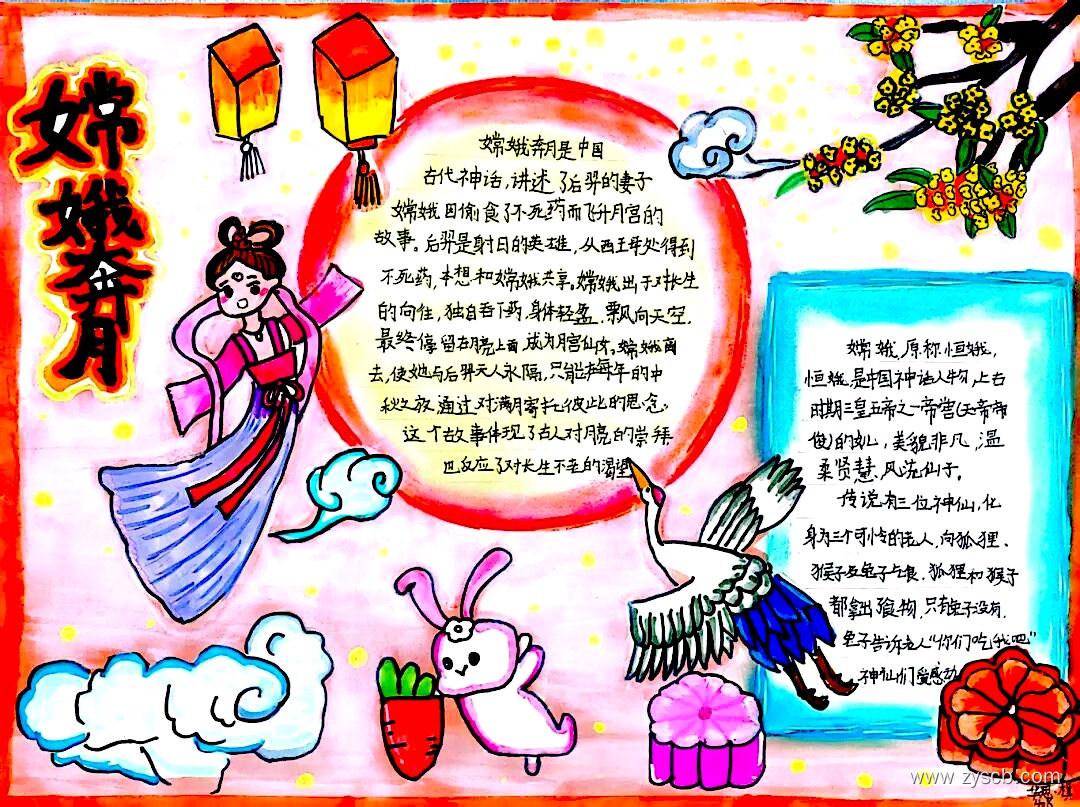 嫦娥奔月
嫦娥奔月是中国
古代神话，讲述了后羿的妻子
嫦娥因偷食了不死药而飞升月宫的
故事。后羿是射日的英雄，从西王母处得到
不死药，本想和嫦娥共享。嫦娥出于对长生
的向往，独自吞下药，身体轻盈，飘向天空，
最终停留在月亮上面，成为月宫仙女。嫦娥离
去，使她与后羿天人永隔，只能在每年的中
秋之夜通过对满月寄托彼此的思念。
这个故事体现了古人对月亮的崇拜
也反应了对长生不老的渴望
嫦娥，原称恒娥，
恒娥，是中国神话人物，上古
时期三皇五帝之一帝喾(天帝帝
俊)的女儿，美貌非凡，温
柔贤慧，风流仙子。
传说有三位神仙，化
身为三个可怜的老人，向狐狸、
猴子及兔子乞食，狐狸和猴子
都拿出食物，只有兔子没有，
兔子告诉老人"你们吃我吧"
神仙们受感动
www.zyscb.com